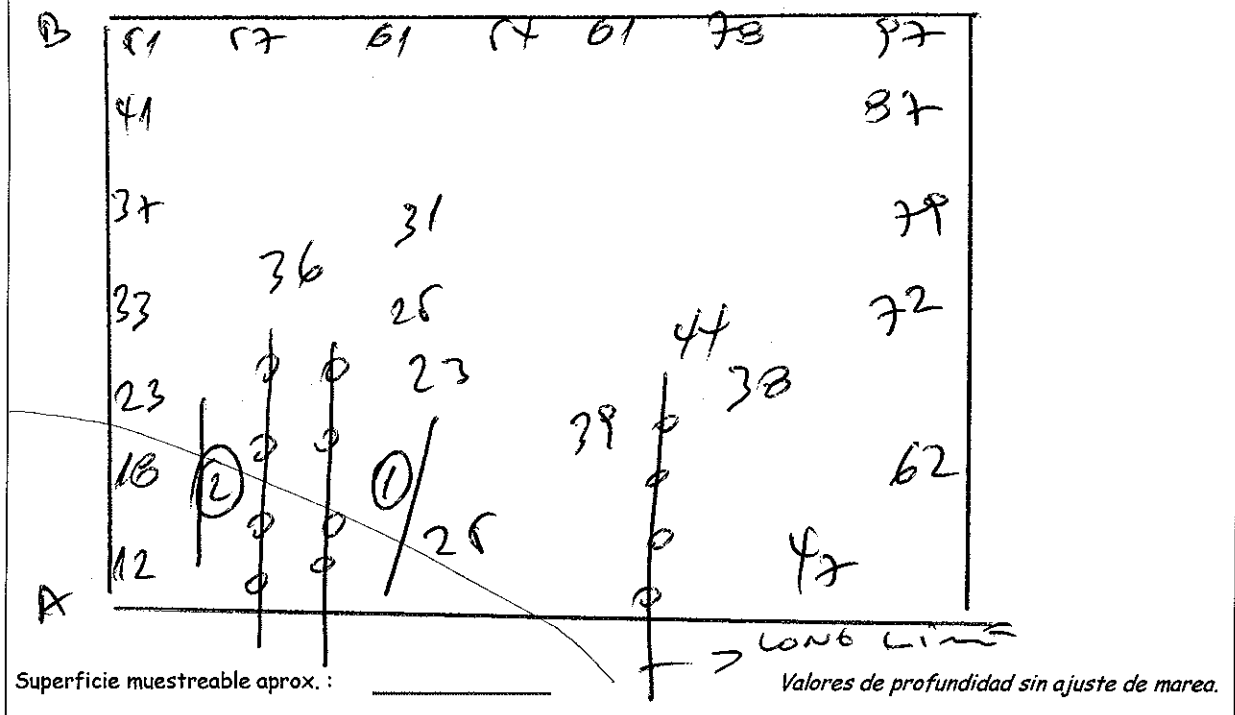 B 51 57 61 54 61 78 97
41 87
37 31 79
36
33 25 72
44
23 23 38
39
18 2 1 62
25
12 47
A
→ LONG LINE
Superficie muestreable aprox. :
Valores de profundidad sin ajuste de marea.